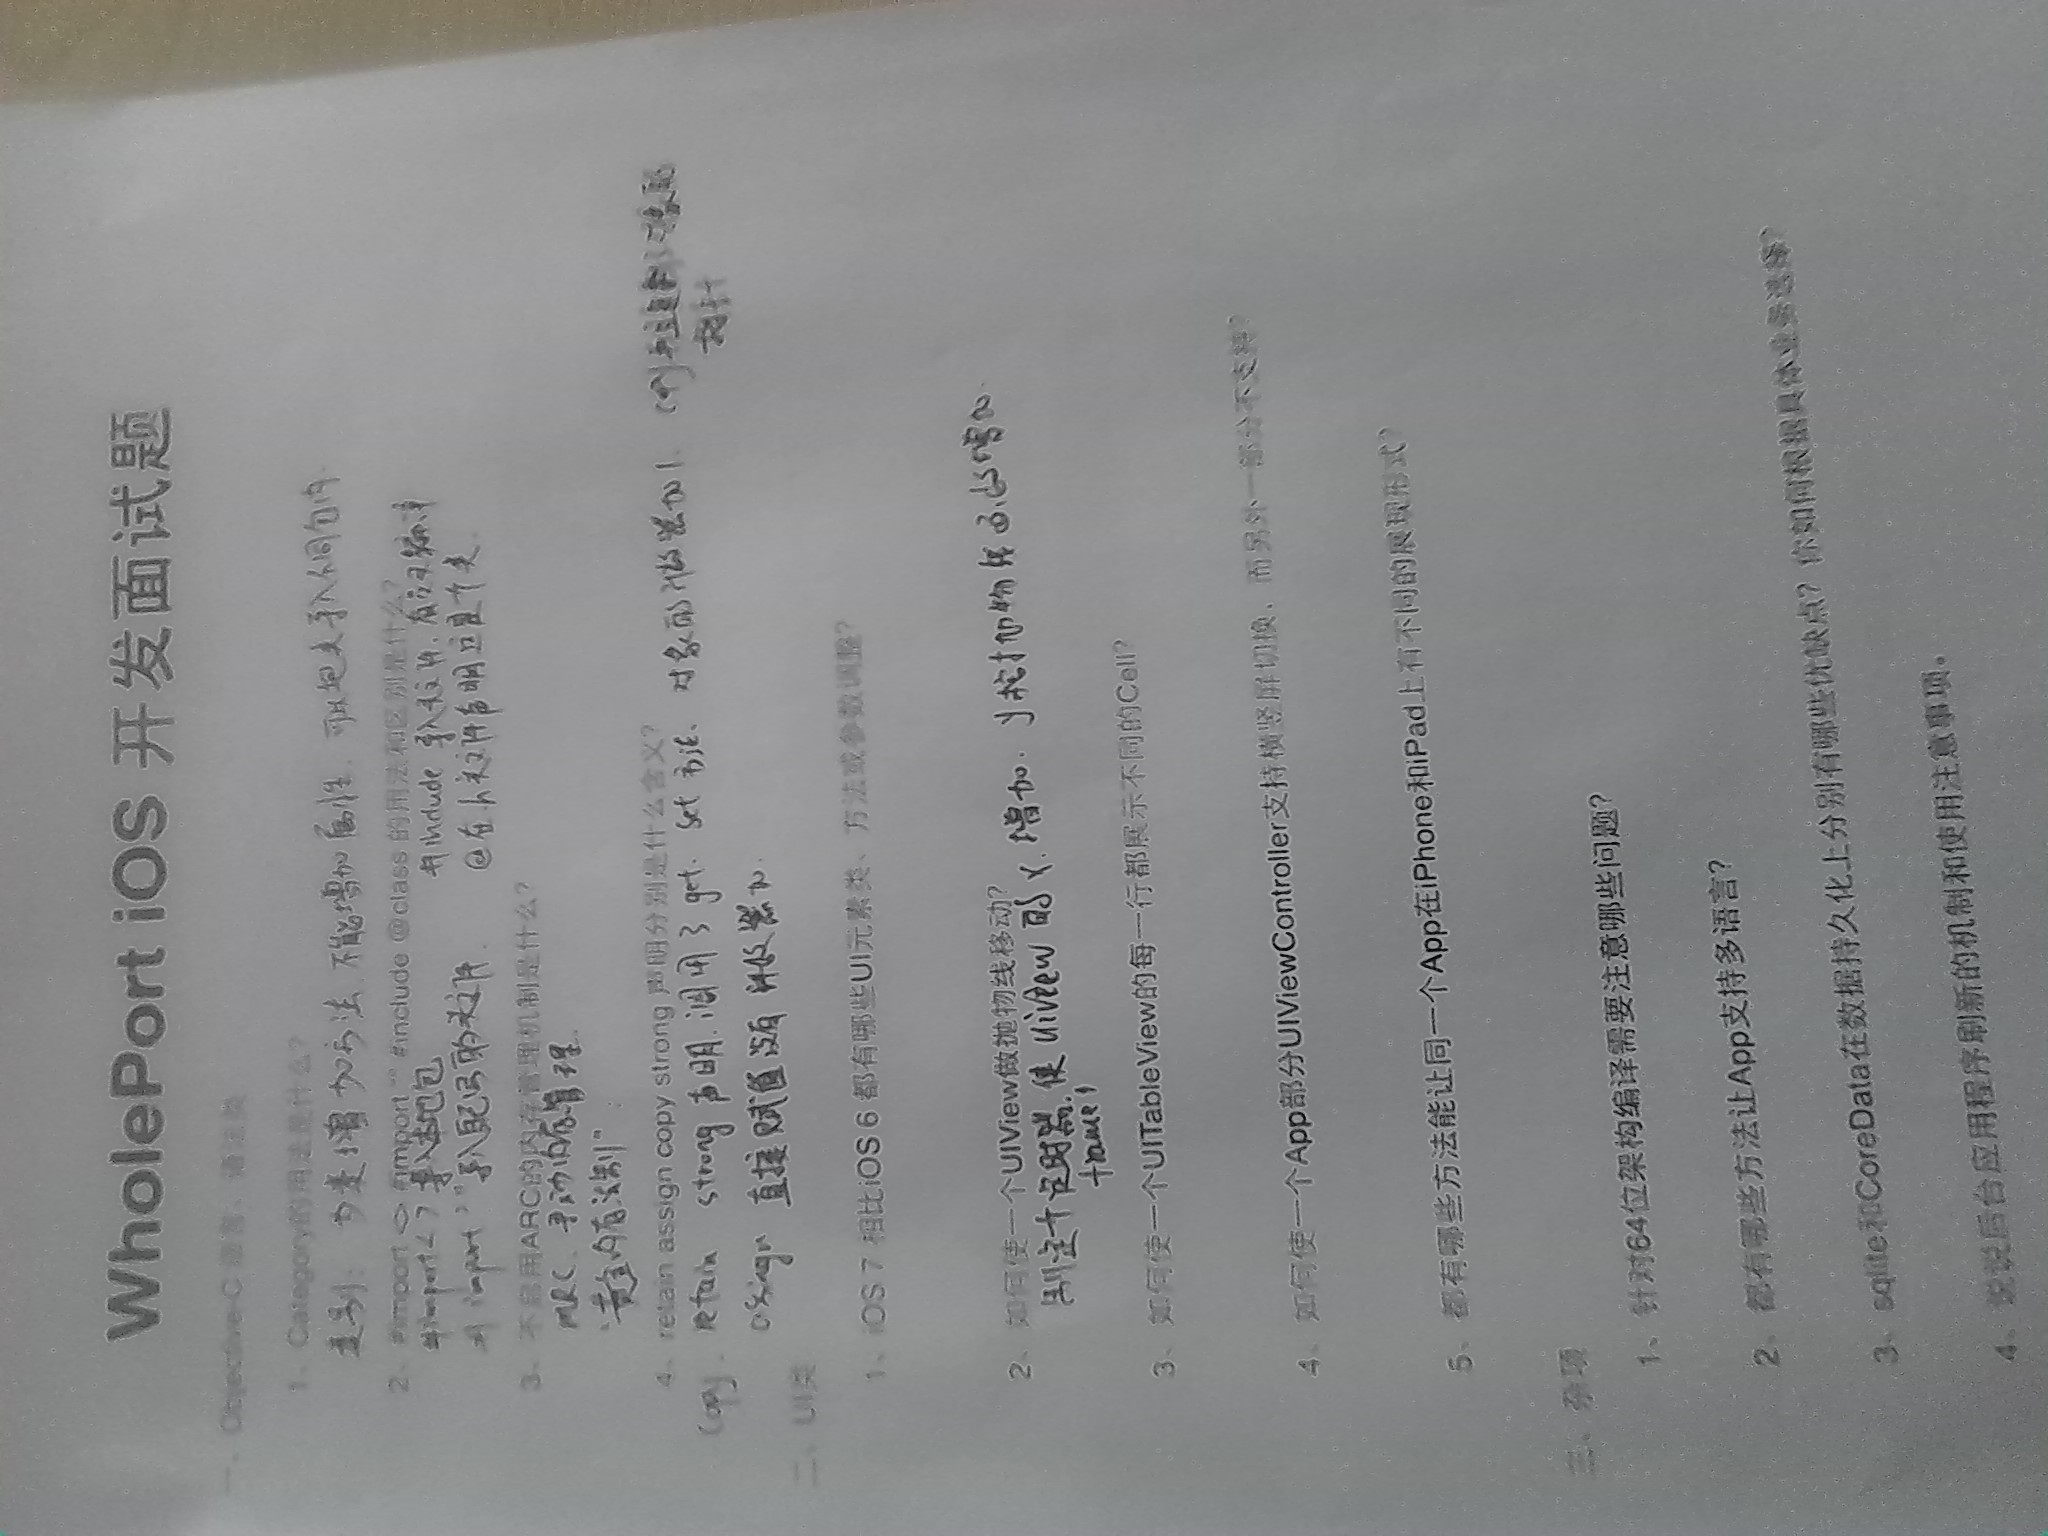 WholePort iOS 开发面试题
一、Objective-C 语言、语法类
1、Category的用法是什么?
类别: 为类增加方法,不能增加属性.
2、#import <> #import "" #include @class 的用法和区别是什么?
#import <> 导入 包 #include 导入文件.
#import " " 导入 的文件. @ 在.h文件声明这是个类.
3、不启用ARC的内存管理机制是什么?
MRC、手动内存管理.
"黄金内存法则":
4、retain assign copy strong 声明分别是什么含义?
retain strong 声明.调用了 get. set 方法. 对象的计数器加1.
copy.
assign 直接赋值没有计数器加
二、UI类
1、iOS 7 相比iOS 6 都有哪些UI元素类、方法或参数调整?
2、如何使一个UIView做抛物线移动?
时器.使 UIView 的 x.增加. y 加
3、如何使一个UITableView的每一行都展示不同的Cell?
4、如何使一个App部分UIViewController支持横竖屏切换、而另外一部分不支持?
5、都有哪些方法能让同一个App在iPhone和iPad上有不同的展现形式?
三、杂项
1、针对64位架构编译需要注意哪些问题?
2、都有哪些方法让App支持多语言?
3、sqlite和CoreData在数据持久化上分别有哪些优缺点? 你如何根据具体业务选择?
4、说说后台应用程序刷新的机制和使用注意事项。